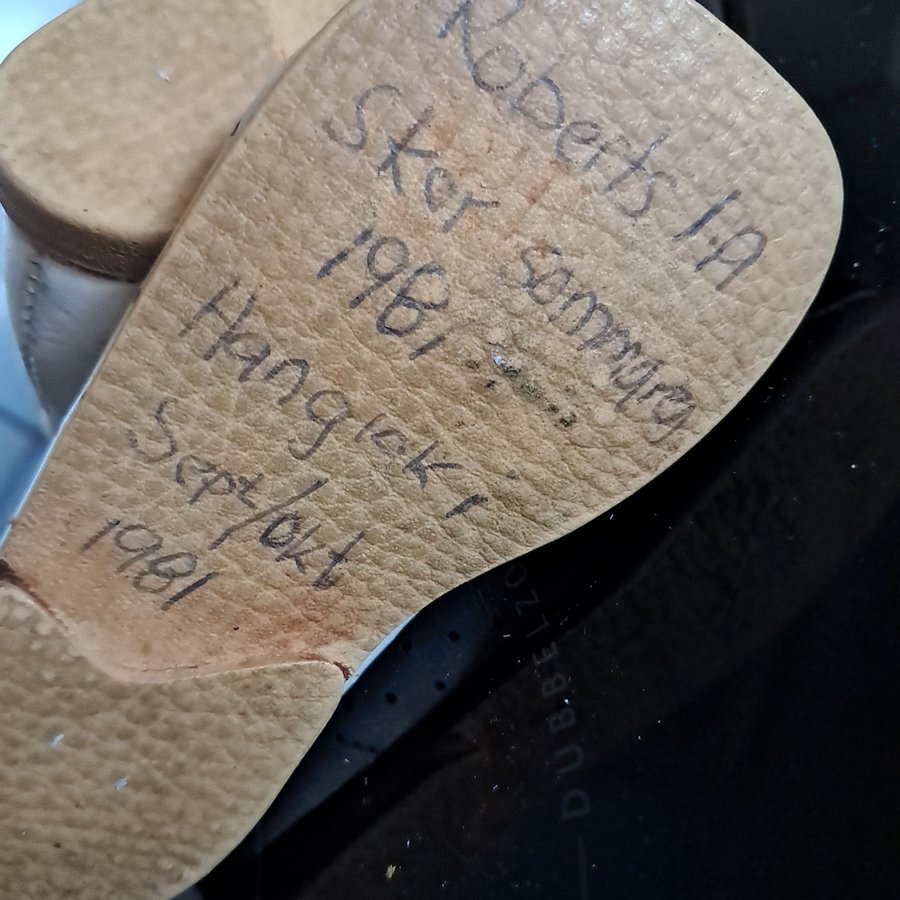 Roberts 1:A
Skor sommaren
1981
Han gick i
Sept/okt
1981
DUBBEL